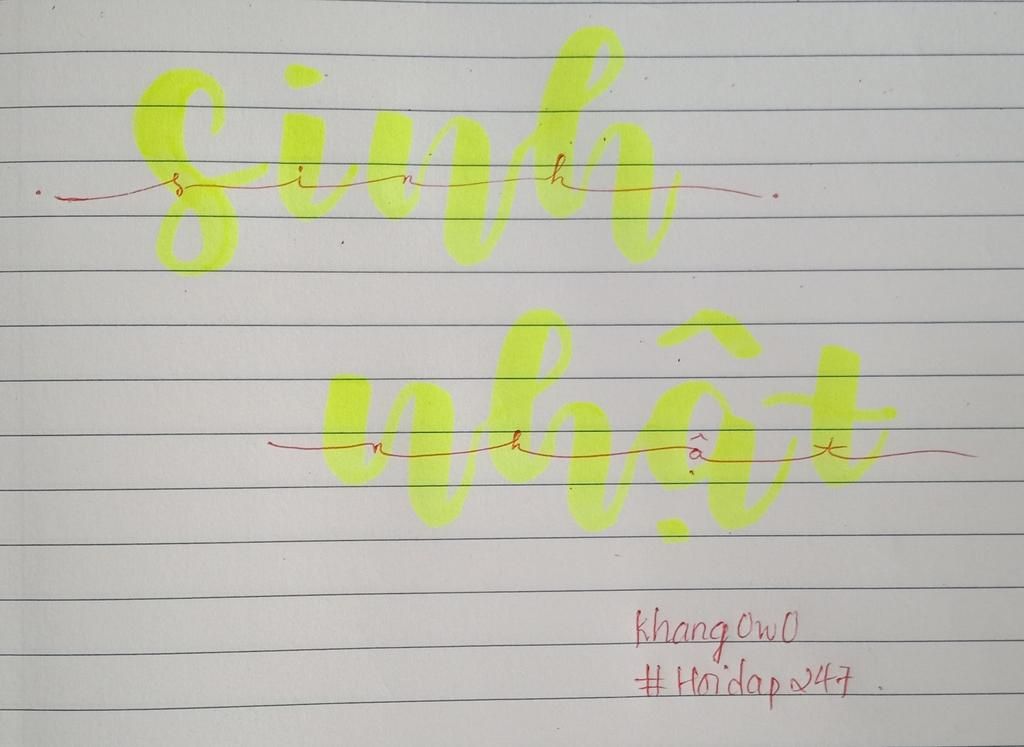 sinh
sinh
nhật
nhật
Khang0w0
#Hoidap247